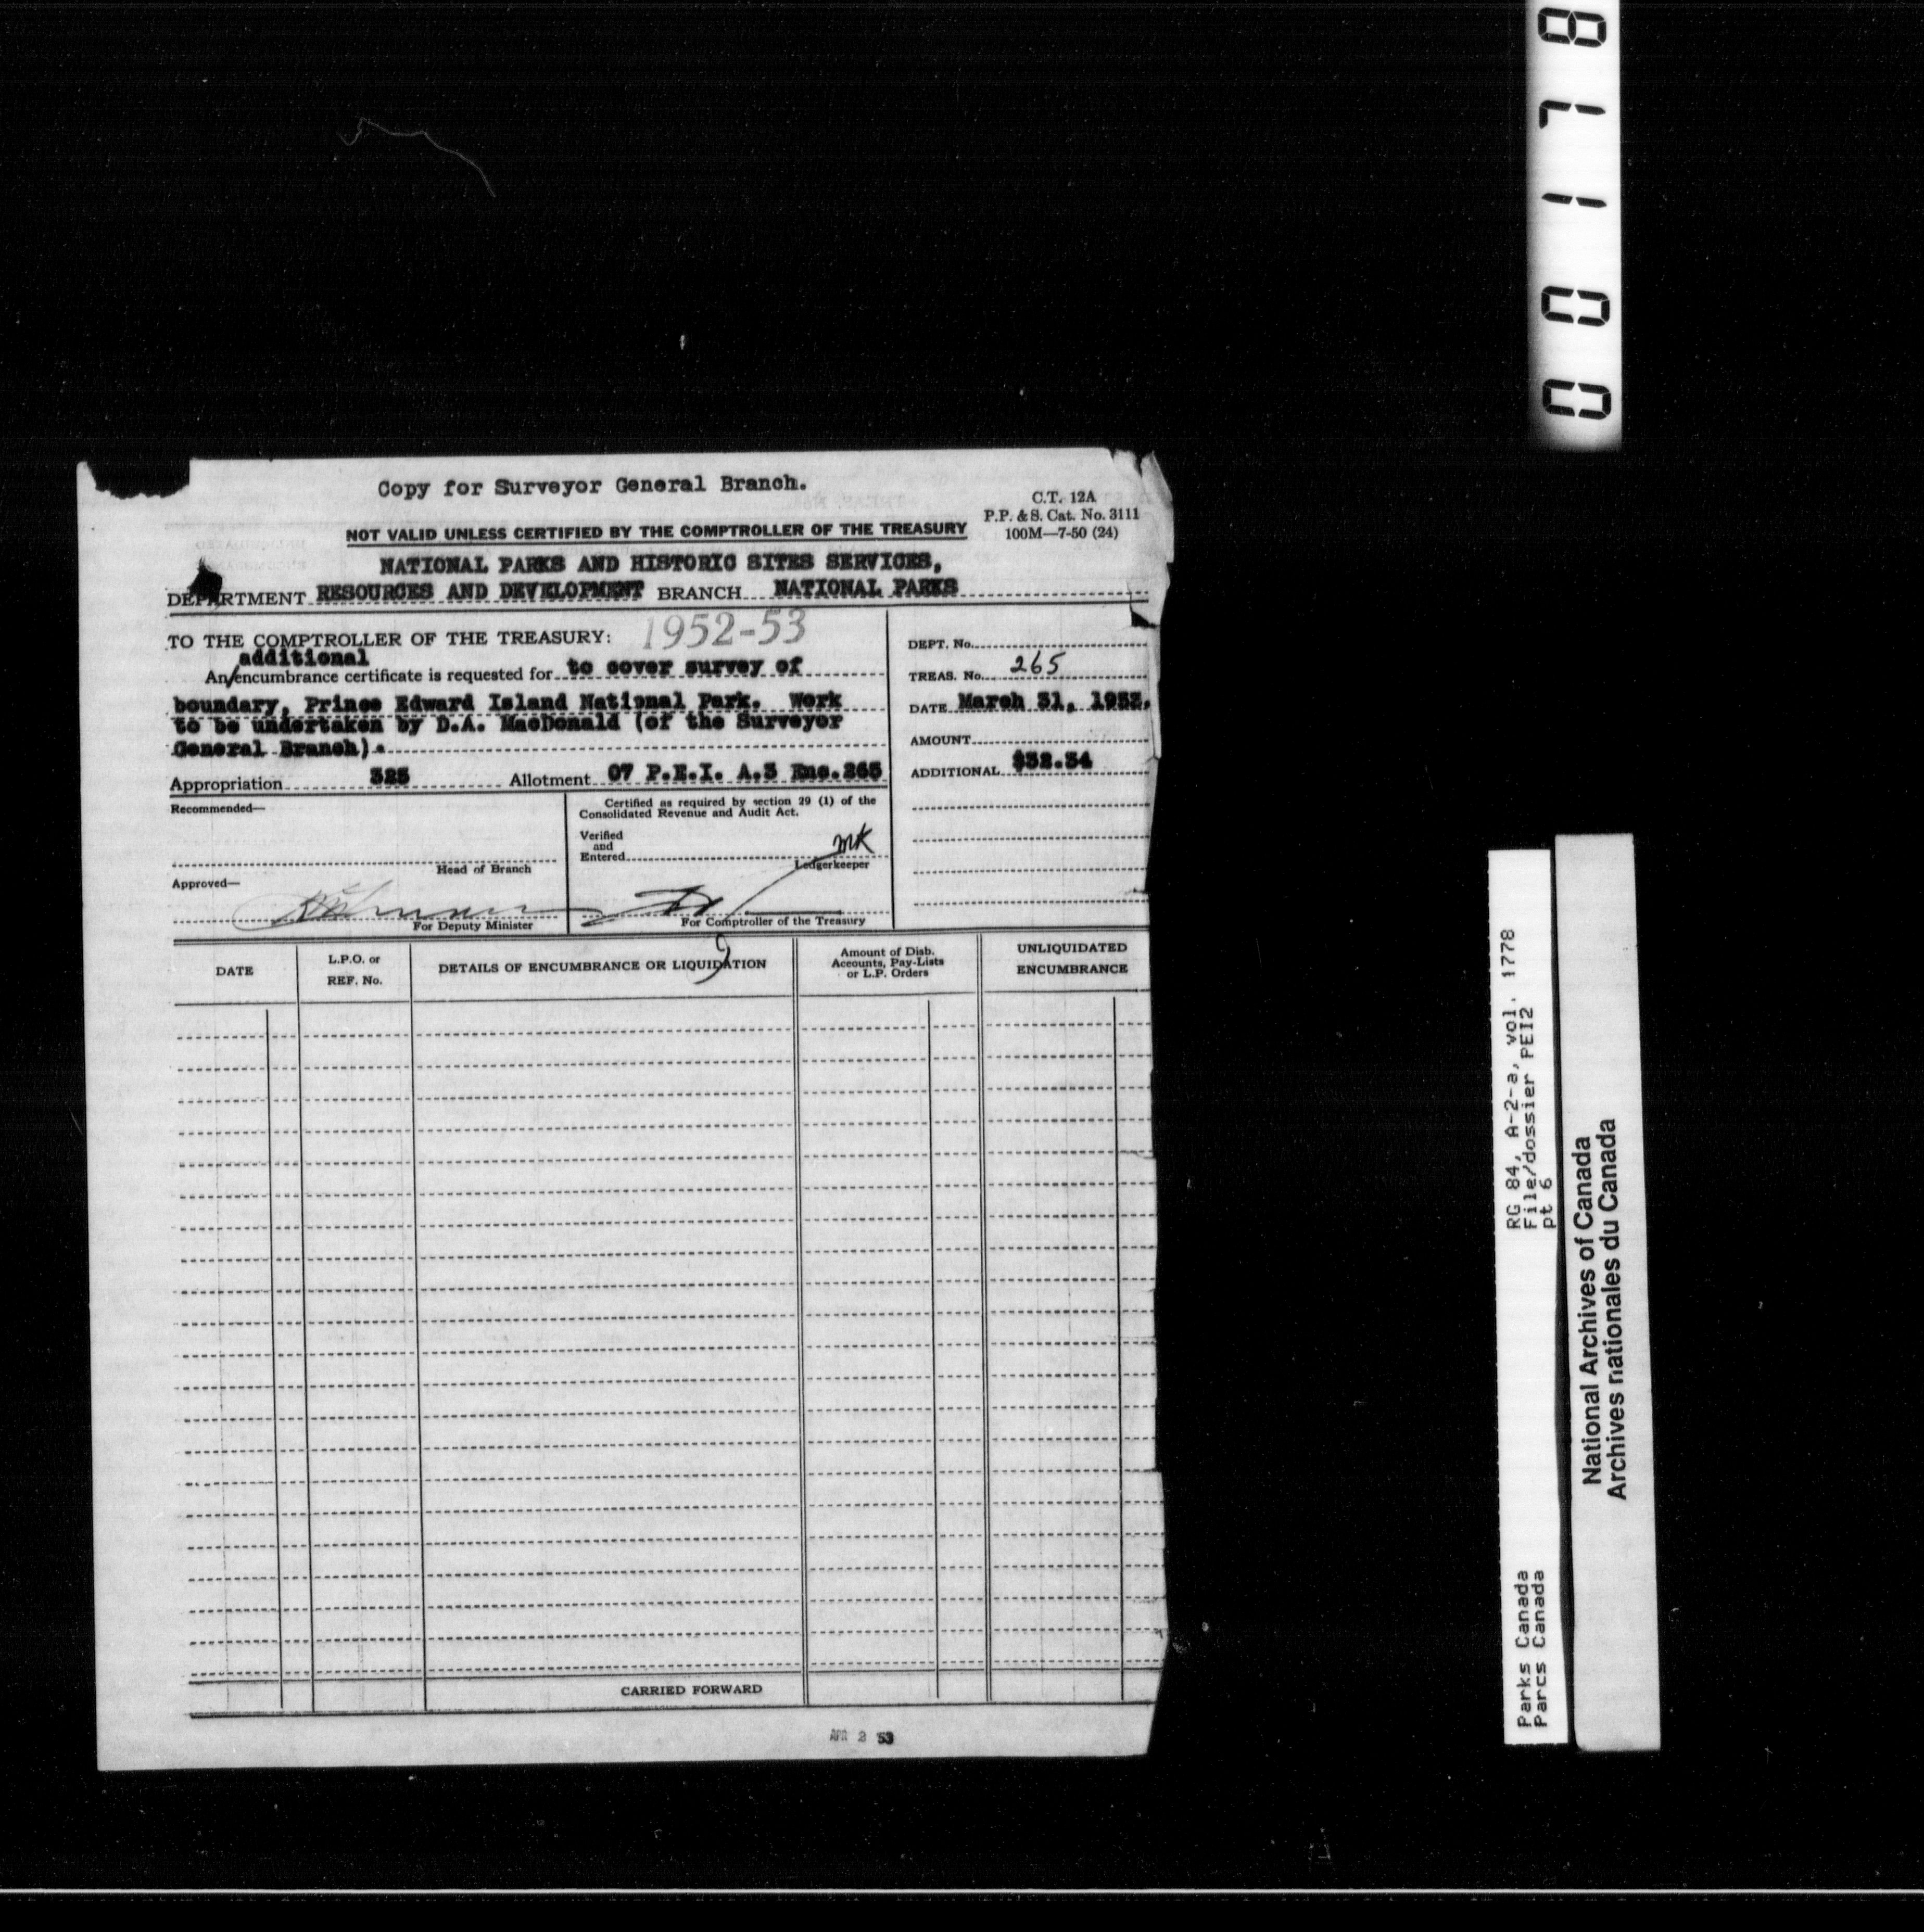 Copy for Surveyor General Branch.
C.T. 12A
P.P. & S. Cat. No. 3111
100M—7-50 (24)
NOT VALID UNLESS CERTIFIED BY THE COMPTROLLER OF THE TREASURY
NATIONAL PARKS AND HISTORIC SITES SERVICES,
DEPARTMENT RESOURCES AND DEVELOPMENT BRANCH NATIONAL PARKS
TO THE COMPTROLLER OF THE TREASURY: 1952-53
additional
An/encumbrance certificate is requested for to cover survey of
boundary, Prince Edward Island National Park. Work
to be undertaken by D.A. MacDonald (of the Surveyor
General Branch).
Appropriation 325 Allotment 07 P.E.I. A.3 Enc.265
DEPT. No.
TREAS. No. 265
DATE March 31, 1953.
AMOUNT
ADDITIONAL $32.34
Recommended—
Head of Branch
Approved—
For Deputy Minister
Certified as required by section 29 (1) of the
Consolidated Revenue and Audit Act.
Verified
and
Entered MK
Ledgerkeeper
For Comptroller of the Treasury
DATE
L.P.O. or
REF. No.
DETAILS OF ENCUMBRANCE OR LIQUIDATION
Amount of Disb.
Accounts, Pay-Lists
or L.P. Orders
UNLIQUIDATED
ENCUMBRANCE
CARRIED FORWARD
APR 2 53
00178
RG 84, A-2-a, vol. 1778
File/dossier PEI2
pt 6
Parks Canada
Parcs Canada
National Archives of Canada
Archives nationales du Canada